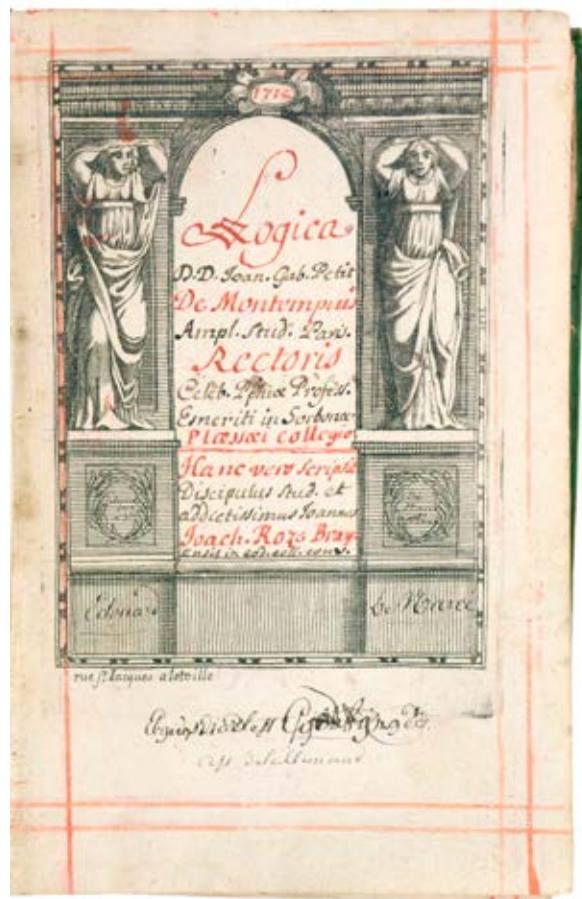 1712
Logica
D.D. Joan. Gab. Petit
De Montempuis
Ampl. Stud. Paris.
Rectoris
Celeb. Pphiæ Profess.
Emeriti in Sorbonæ
Plæssæi collegio
Hanc vero scripsit
Discipulus stud. et
addictissimus Joannes
Joach.
in eod. coll. conv.
Edouard
de
rue st Jacques a la ville